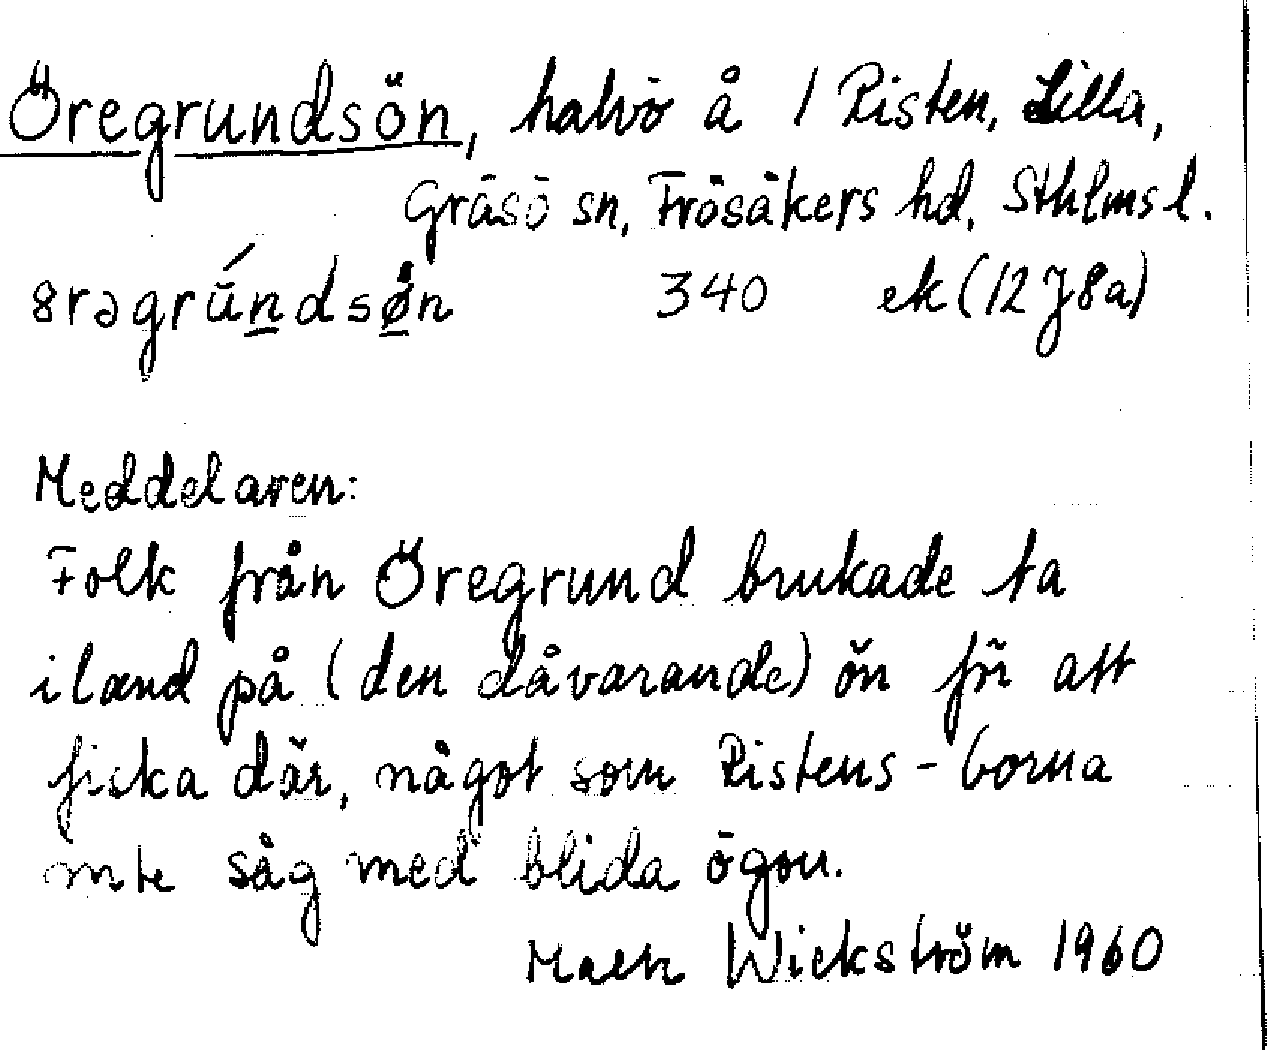 Öregrundsön, halvö å 1 Risten, Lilla,
Gräsö sn, Frösåkers hd, Sthlms l.
8rəgrūńdsøn 340 ek (12J8a)
Meddelaren:
Folk från Öregrund brukade ta
iland på (den dåvarande) ön för att
fiska där, något som Ristens-borna
inte såg med blida ögon.
Wickström 1960